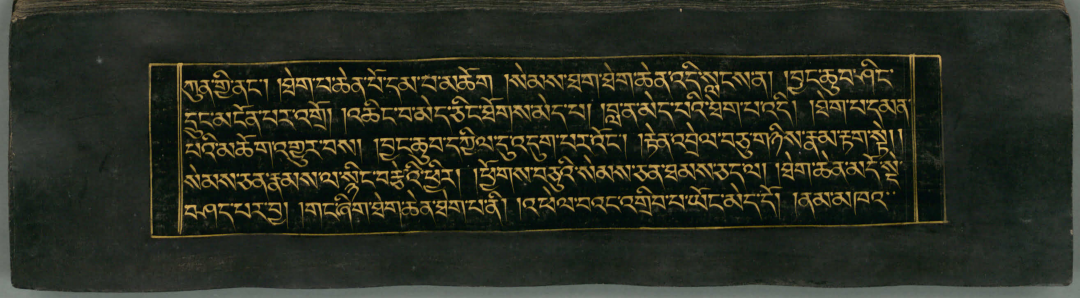 ཀུན་གྱི་ནང་། །ཐེག་པ་ཆེན་པོ་དམ་པ་མཆོག །སེམས་ཐག་ཐེག་ཆེན་འདི་སླངས་ན། །བྱང་ཆུབ་ཤིང་
དྲུང་མངོན་པར་འགྲོ། །འཆིང་བ་མེད་ཅིང་ཐོགས་མེད་པ། །བླ་ན་མེད་པའི་ཐེག་པ་འདི། །ཐེག་པ་དམན་
པའི་མཆོག་འགྱུར་བས། །བྱང་ཆུབ་དཀྱིལ་དུ་འདུག་པར་འོང་། །རྟེན་འབྲེལ་བཅུ་གཉིས་རྣམ་རྟག་སྟེ།།
སེམས་ཅན་རྣམས་ལ་སྙིང་བརྩེའི་ཕྱིར། །ཕྱོགས་བཅུའི་སེམས་ཅན་ཐམས་ཅད་ལ། །ཐེག་ཆེན་མདོ་སྡེ་
བཤད་པར་བྱ། །གང་ཞིག་ཐེག་ཆེན་ཐེག་པ་ནི། །འཕེལ་བའང་འགྲིབ་པ་ཡོང་མེད་དོ། །ནམ་མཁའ་